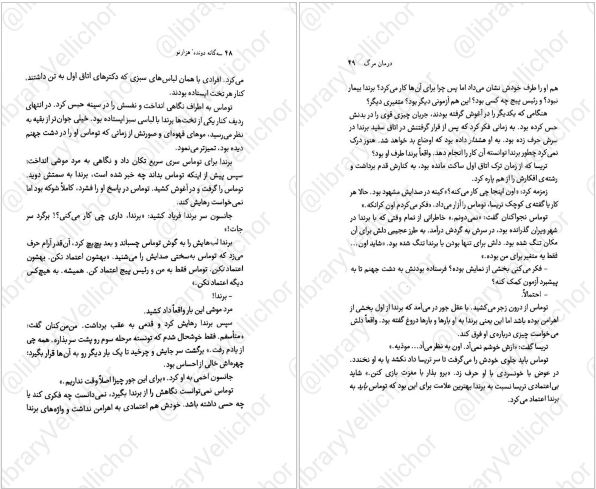 ۴۸ سه‌گانه دونده هزارتو
می‌کرد. افرادی با همان لباس‌های سبزی که دکترهای اتاق اول به تن داشتند،
کنار هر تخت ایستاده بودند.
توماس به اطراف نگاهی انداخت و نفسش را در سینه حبس کرد. در انتهای
ردیف کنار یکی از تخت‌ها برندا با لباسی سبز ایستاده بود. خیلی جوان‌تر از بقیه به
نظر می‌رسید، موهای قهوه‌ای و صورتش از زمانی که توماس او را در دشت جهنم
دیده بود، تمیزتر می‌نمود.
برندا برای توماس سری سریع تکان داد و نگاهی به مرد موشی انداخت؛
سپس پیش از اینکه توماس بداند چه خبر شده است، برندا به سمتش دوید.
توماس را گرفت و در آغوش کشید. توماس در پاسخ او را فشرد، کاملاً شوکه بود اما
نمی‌خواست رهایش کند.
جانسون سر برندا فریاد کشید: «برندا، داری چی کار می‌کنی؟! برگرد سر
جات!»
برندا لب‌هایش را به گوش توماس چسباند و بعد پچ‌پچ کرد، آن‌قدر آرام حرف
می‌زد که توماس به‌سختی صدایش را می‌شنید. «بهشون اعتماد نکن. بهشون
اعتماد نکن. توماس فقط به من و رئیس پیج اعتماد کن. همیشه. به هیچ‌کس
دیگه اعتماد نکن.»
- برندا!
مرد موشی این بار واقعاً داد کشید.
سپس برندا رهایش کرد و قدمی به عقب برداشت. من‌من‌کنان گفت:
«متأسفم. فقط خوشحال شدم که تونسته مرحله سوم رو پشت سر بذاره. همه چی
از یادم رفت.» برگشت سر جایش و چرخید تا یک بار دیگر رو به آن‌ها قرار بگیرد؛
چهره‌اش خالی از احساس بود.
جانسون اخمی به او کرد. «برای این جور چیزا اصلاً وقت نداریم.»
توماس نمی‌توانست نگاهش را از برندا بگیرد، نمی‌دانست چه فکری کند یا
چه حسی داشته باشد. خودش هم اعتمادی به اهرامن نداشت و واژه‌های برندا
درمان مرگ ۴۹
هم او را طرف خودش نشان می‌داد اما پس چرا برای آن‌ها کار می‌کرد؟ برندا بیمار
نبود؟ و رئیس پیج چه کسی بود؟ این هم آزمونی دیگر بود؟ متغیری دیگر؟
هنگامی که یکدیگر را در آغوش گرفته بودند، جریان چیزی قوی را در بدنش
حس کرده بود. به زمانی فکر کرد که پس از قرار گرفتنش در اتاق سفید برندا در
سرش حرف زده بود. به او هشدار داده بود که اوضاع بد خواهد شد. هنوز درک
نمی‌کرد چطور برندا توانسته آن کار را انجام دهد. واقعاً برندا طرف او بود؟
تریسا که از زمان ترک اتاق اول ساکت مانده بود، به کنارش قدم برداشت و
رشته‌ی افکارش را از هم پاره کرد.
زمزمه کرد: «اون اینجا چی کار می‌کنه؟» کینه در صدایش مشهود بود. حالا هر
کار یا گفته‌ی کوچک تریسا، توماس را آزار می‌داد. «فکر می‌کردم اون کرانکه.»
توماس نجواکنان گفت: «نمی‌دونم.» خاطراتی از تمام وقتی که با برندا در
شهر ویران گذرانده بود، در سرش به گردش درآمد. به طرز عجیبی دلش برای آن
مکان تنگ شده بود. دلش برای تنها بودن با برندا تنگ شده بود. «شاید اون...
فقط یه متغیر برای من بوده.»
- فکر می‌کنی بخشی از نمایش بوده؟ فرستاده بودنش به دشت جهنم تا به
پیشبرد آزمون کمک کنه؟
- احتمالاً.
توماس از درون زجر می‌کشید. با عقل جور در می‌آمد که برندا از اول بخشی از
اهرامن بوده باشد اما این یعنی برندا به او بارها و بارها دروغ گفته بود. واقعاً دلش
می‌خواست چیزی درباره‌ی او فرق کند.
تریسا گفت: «ازش خوشم نمی‌آد. اون به نظر می‌آد... موذیه.»
توماس باید جلوی خودش را می‌گرفت تا سر تریسا داد نکشد یا به او نخندد.
در عوض با خونسردی با او حرف زد. «برو بذار با مغزت بازی کنن.» شاید
بی‌اعتمادی تریسا نسبت به برندا بهترین علامت برای این بود که توماس باید به
برندا اعتماد می‌کرد.
@libraryVellichor